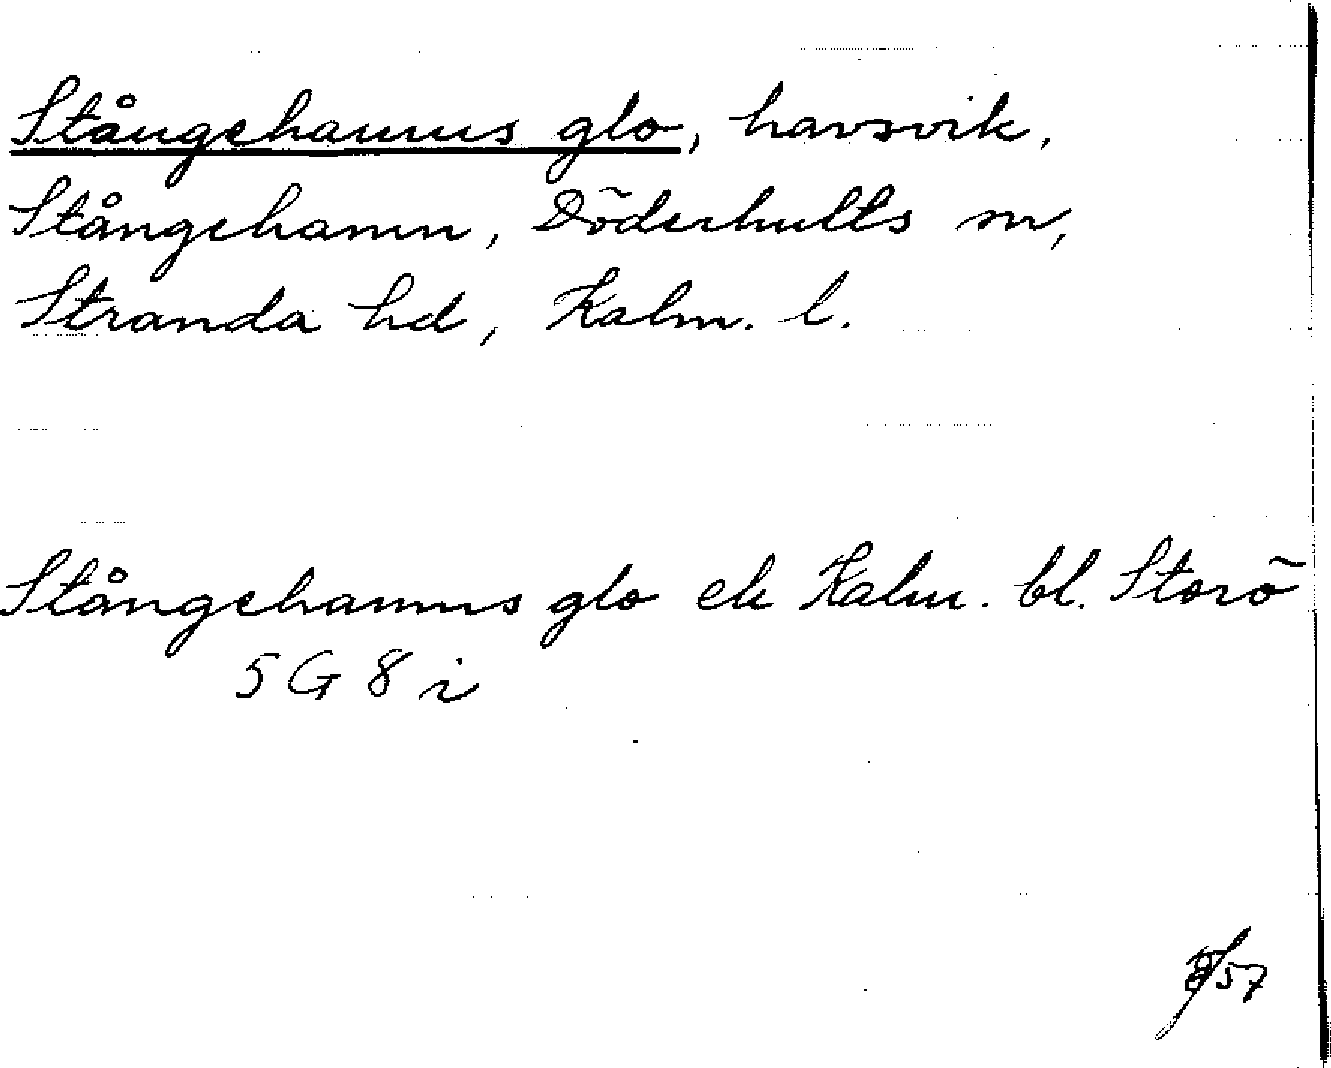 Stångehamns glo, havsvik,
Stångehamn, Döderhults sn,
Stranda hd, Kalm. l.
Stångehamns glo ek Kalm. bl. Storö
5 G 8 i
57